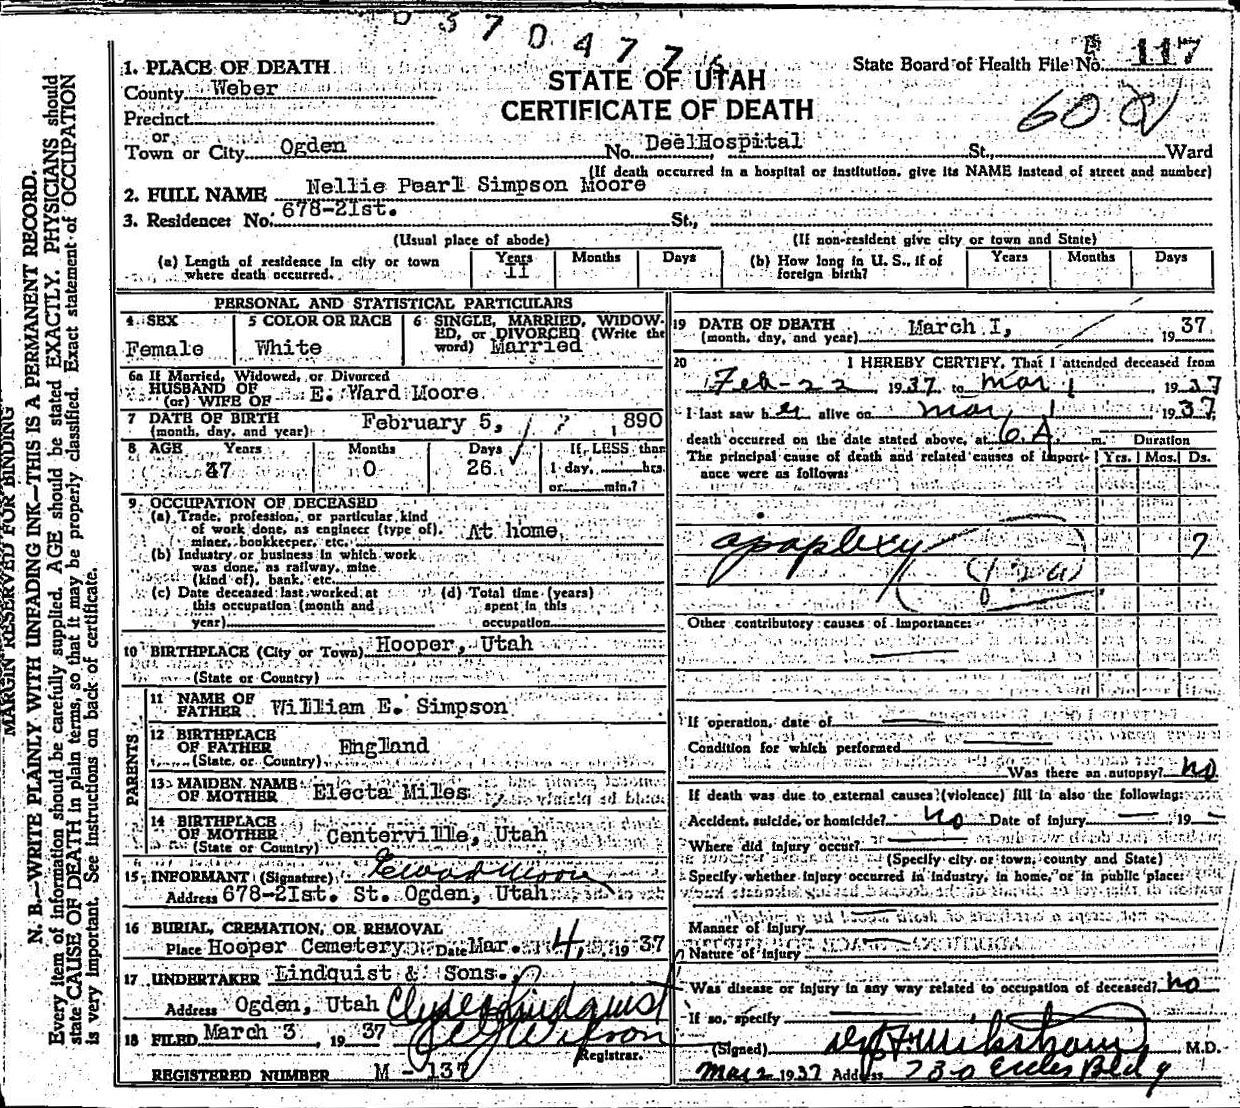 0370477
STATE OF UTAH
CERTIFICATE OF DEATH
State Board of Health File No. 117
60
1. PLACE OF DEATH
County Weber
Precinct
or
Town or City Ogden No. DeelHospital St., Ward
(If death occurred in a hospital or institution, give its NAME instead of street and number)
2. FULL NAME Nellie Pearl Simpson Moore
3. Residence: No. 678-2Ist. St.,
(Usual place of abode) (If non-resident give city or town and State)
(a) Length of residence in city or town where death occurred. Years II Months Days
(b) How long in U. S., if of foreign birth? Years Months Days
PERSONAL AND STATISTICAL PARTICULARS
4 SEX Female
5 COLOR OR RACE White
6 SINGLE, MARRIED, WIDOWED, or DIVORCED (Write the word) Married
6a If Married, Widowed, or Divorced
HUSBAND OF
(or) WIFE OF E. Ward Moore
7 DATE OF BIRTH
(month, day, and year) February 5, 1890
8 AGE Years 47 Months 0 Days 26 If LESS than 1 day, hrs. or min.?
9 OCCUPATION OF DECEASED
(a) Trade, profession, or particular kind
of work done, as engineer (type of),
miner, bookkeeper, etc. At home,
(b) Industry or business in which work
was done, as railway, mine
(kind of), bank, etc.
(c) Date deceased last worked at
this occupation (month and
year)
(d) Total time (years)
spent in this
occupation
10 BIRTHPLACE (City or Town) Hooper, Utah
(State or Country)
PARENTS
11 NAME OF FATHER William E. Simpson
12 BIRTHPLACE OF FATHER England
(State or Country)
13 MAIDEN NAME OF MOTHER Electa Miles
14 BIRTHPLACE OF MOTHER Centerville, Utah
(State or Country)
15 INFORMANT (Signature) E Ward Moore
Address 678-2Ist. St. Ogden, Utah
16 BURIAL, CREMATION, OR REMOVAL
Place Hooper Cemetery Date Mar. 4, 1937
17 UNDERTAKER Lindquist & Sons.
Address Ogden, Utah Clyde Lindquist
18 FILED March 3 1937
Registrar.
REGISTERED NUMBER M - 137
19 DATE OF DEATH
(month, day, and year) March I, 1937
20 I HEREBY CERTIFY, That I attended deceased from
Feb-22 1937 to Mar 1 1937
I last saw her alive on Mar, 1 1937
death occurred on the date stated above, at 6 A. m. Duration
The principal cause of death and related causes of importance were as follows: Yrs. Mos. Ds.
apoplexy 7
Other contributory causes of importance:
If operation, date of
Condition for which performed
Was there an autopsy? no
If death was due to external causes (violence) fill in also the following:
Accident, suicide, or homicide? no Date of injury 19
Where did injury occur?
(Specify city or town, county and State)
Specify whether injury occurred in industry, in home, or in public place:
Manner of injury
Nature of injury
Was disease or injury in any way related to occupation of deceased? no
If so, specify
(Signed) M.D.
Mar 2 1937 Address 730 Eccles Bldg
MARGIN RESERVED FOR BINDING
N. B.—WRITE PLAINLY WITH UNFADING INK—THIS IS A PERMANENT RECORD.
Every item of information should be carefully supplied. AGE should be stated EXACTLY. PHYSICIANS should
state CAUSE OF DEATH in plain terms, so that it may be properly classified. Exact statement of OCCUPATION
is very important. See instructions on back of certificate.